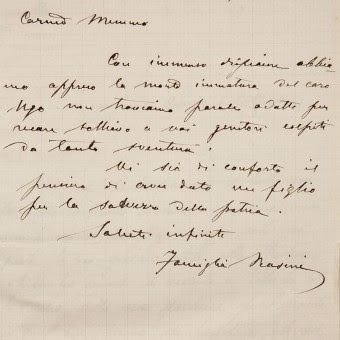 Carmo Memmo
Con immenso dispiacere abbia-
mo appreso la morte immatura del caro
Ugo non troviamo parole adatte per
recare sollievo a voi genitori colpiti
da tanta sventura.
Vi sia di conforto il
pensiero di aver dato un figlio
per la salvezza della patria.
Saluti infiniti
Famiglia Rasini